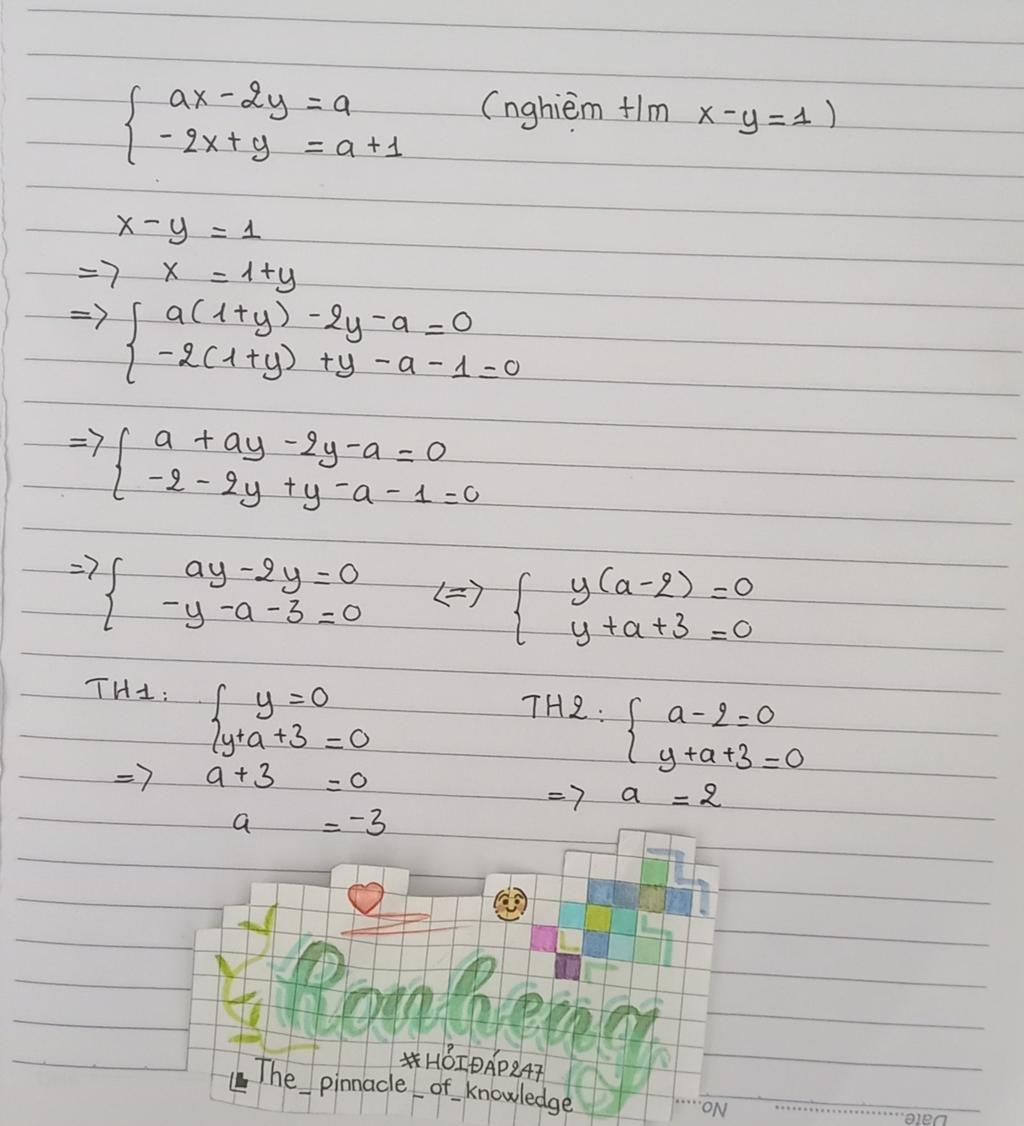 { ax - 2y = a (nghiệm t/m x - y = 1)
{ -2x + y = a + 1
x - y = 1
=> x = 1 + y
=> { a(1+y) - 2y - a = 0
{ -2(1+y) + y - a - 1 = 0
=> { a + ay - 2y - a = 0
{ -2 - 2y + y - a - 1 = 0
=> { ay - 2y = 0 <=> { y(a-2) = 0
{ -y - a - 3 = 0 { y + a + 3 = 0
TH1: { y = 0 TH2: { a - 2 = 0
{ y + a + 3 = 0 { y + a + 3 = 0
=> a + 3 = 0 => a = 2
a = -3
Ronheng
#HỎIĐÁP247
The_pinnacle_of_knowledge
No.....
Date